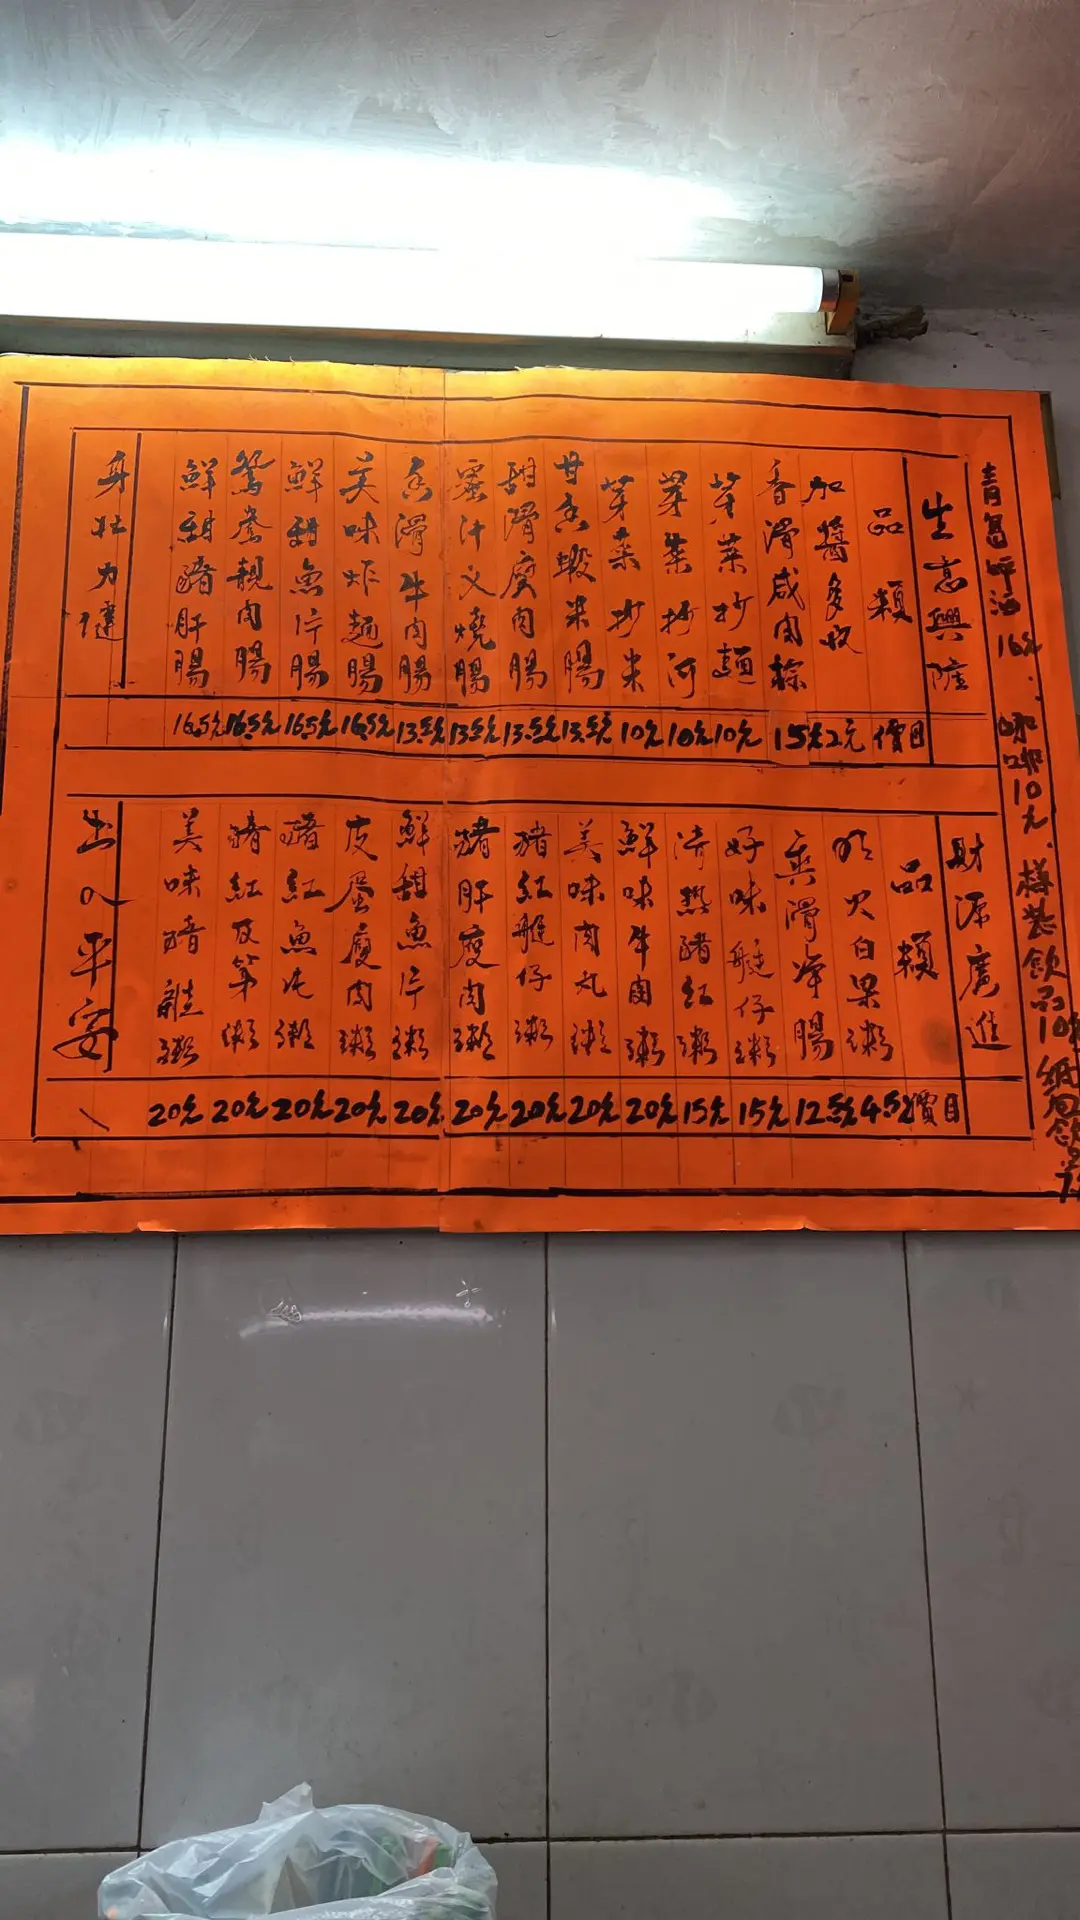 青島啤酒 16元 咖啡10元 樽裝飲品10元 紙包飲品
生意興隆
品類 價目
加醬多收 2元
香滑咸肉粽 15元
芽菜抄麵 10元
芽菜抄河 10元
芽菜抄米 10元
甘香蝦米腸 13.5元
甜滑廋肉腸 13.5元
蜜汁叉燒腸 13.5元
香滑牛肉腸 13.5元
美味炸麵腸 16.5元
鮮甜魚片腸 16.5元
鴛鴦靚肉腸 16.5元
鮮甜豬肝腸 16.5元
身壮力健
財源廣進
品類 價目
明火白果粥 4.5元
爽滑淨腸 12.5元
好味艇仔粥 15元
清热豬紅粥 15元
鮮味牛肉粥 20元
美味肉丸粥 20元
豬紅艇仔粥 20元
豬肝廋肉粥 20元
鮮甜魚片粥 20元
皮蛋廋肉粥 20元
豬紅魚片粥 20元
豬紅及第粥 20元
美味豬雜粥 20元
出入平安